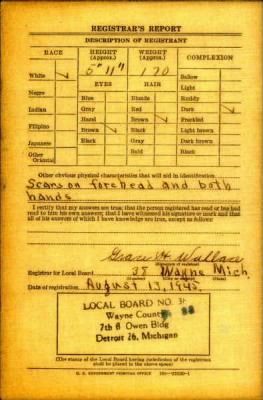 REGISTRAR'S REPORT
DESCRIPTION OF REGISTRANT
RACE HEIGHT (Approx.) WEIGHT (Approx.) COMPLEXION
White ✓ 5' 11" 170 Sallow
Light
Negro EYES HAIR Ruddy
Indian Blue Blonde Dark ✓
Gray Red Freckled
Filipino Hazel Brown ✓ Light brown
Brown ✓ Black Dark brown
Japanese Black Gray Black
Other
Oriental Bald
Other obvious physical characteristics that will aid in identification.
Scars on forehead and both
hands
I certify that my answers are true; that the person registered has read or has had
read to him his own answers; that I have witnessed his signature or mark and that
all of his answers of which I have knowledge are true, except as follows:
Grace H Wallace
(Signature of registrar)
Registrar for Local Board 38 Wayne Mich.
(Number) (City or county) (State)
Date of registration August 13, 1945
LOCAL BOARD NO. 38
Wayne County
7th fl Owen Bldg
Detroit 26, Michigan
(The stamp of the Local Board having jurisdiction of the registrant
shall be placed in the above space)
U. S. GOVERNMENT PRINTING OFFICE